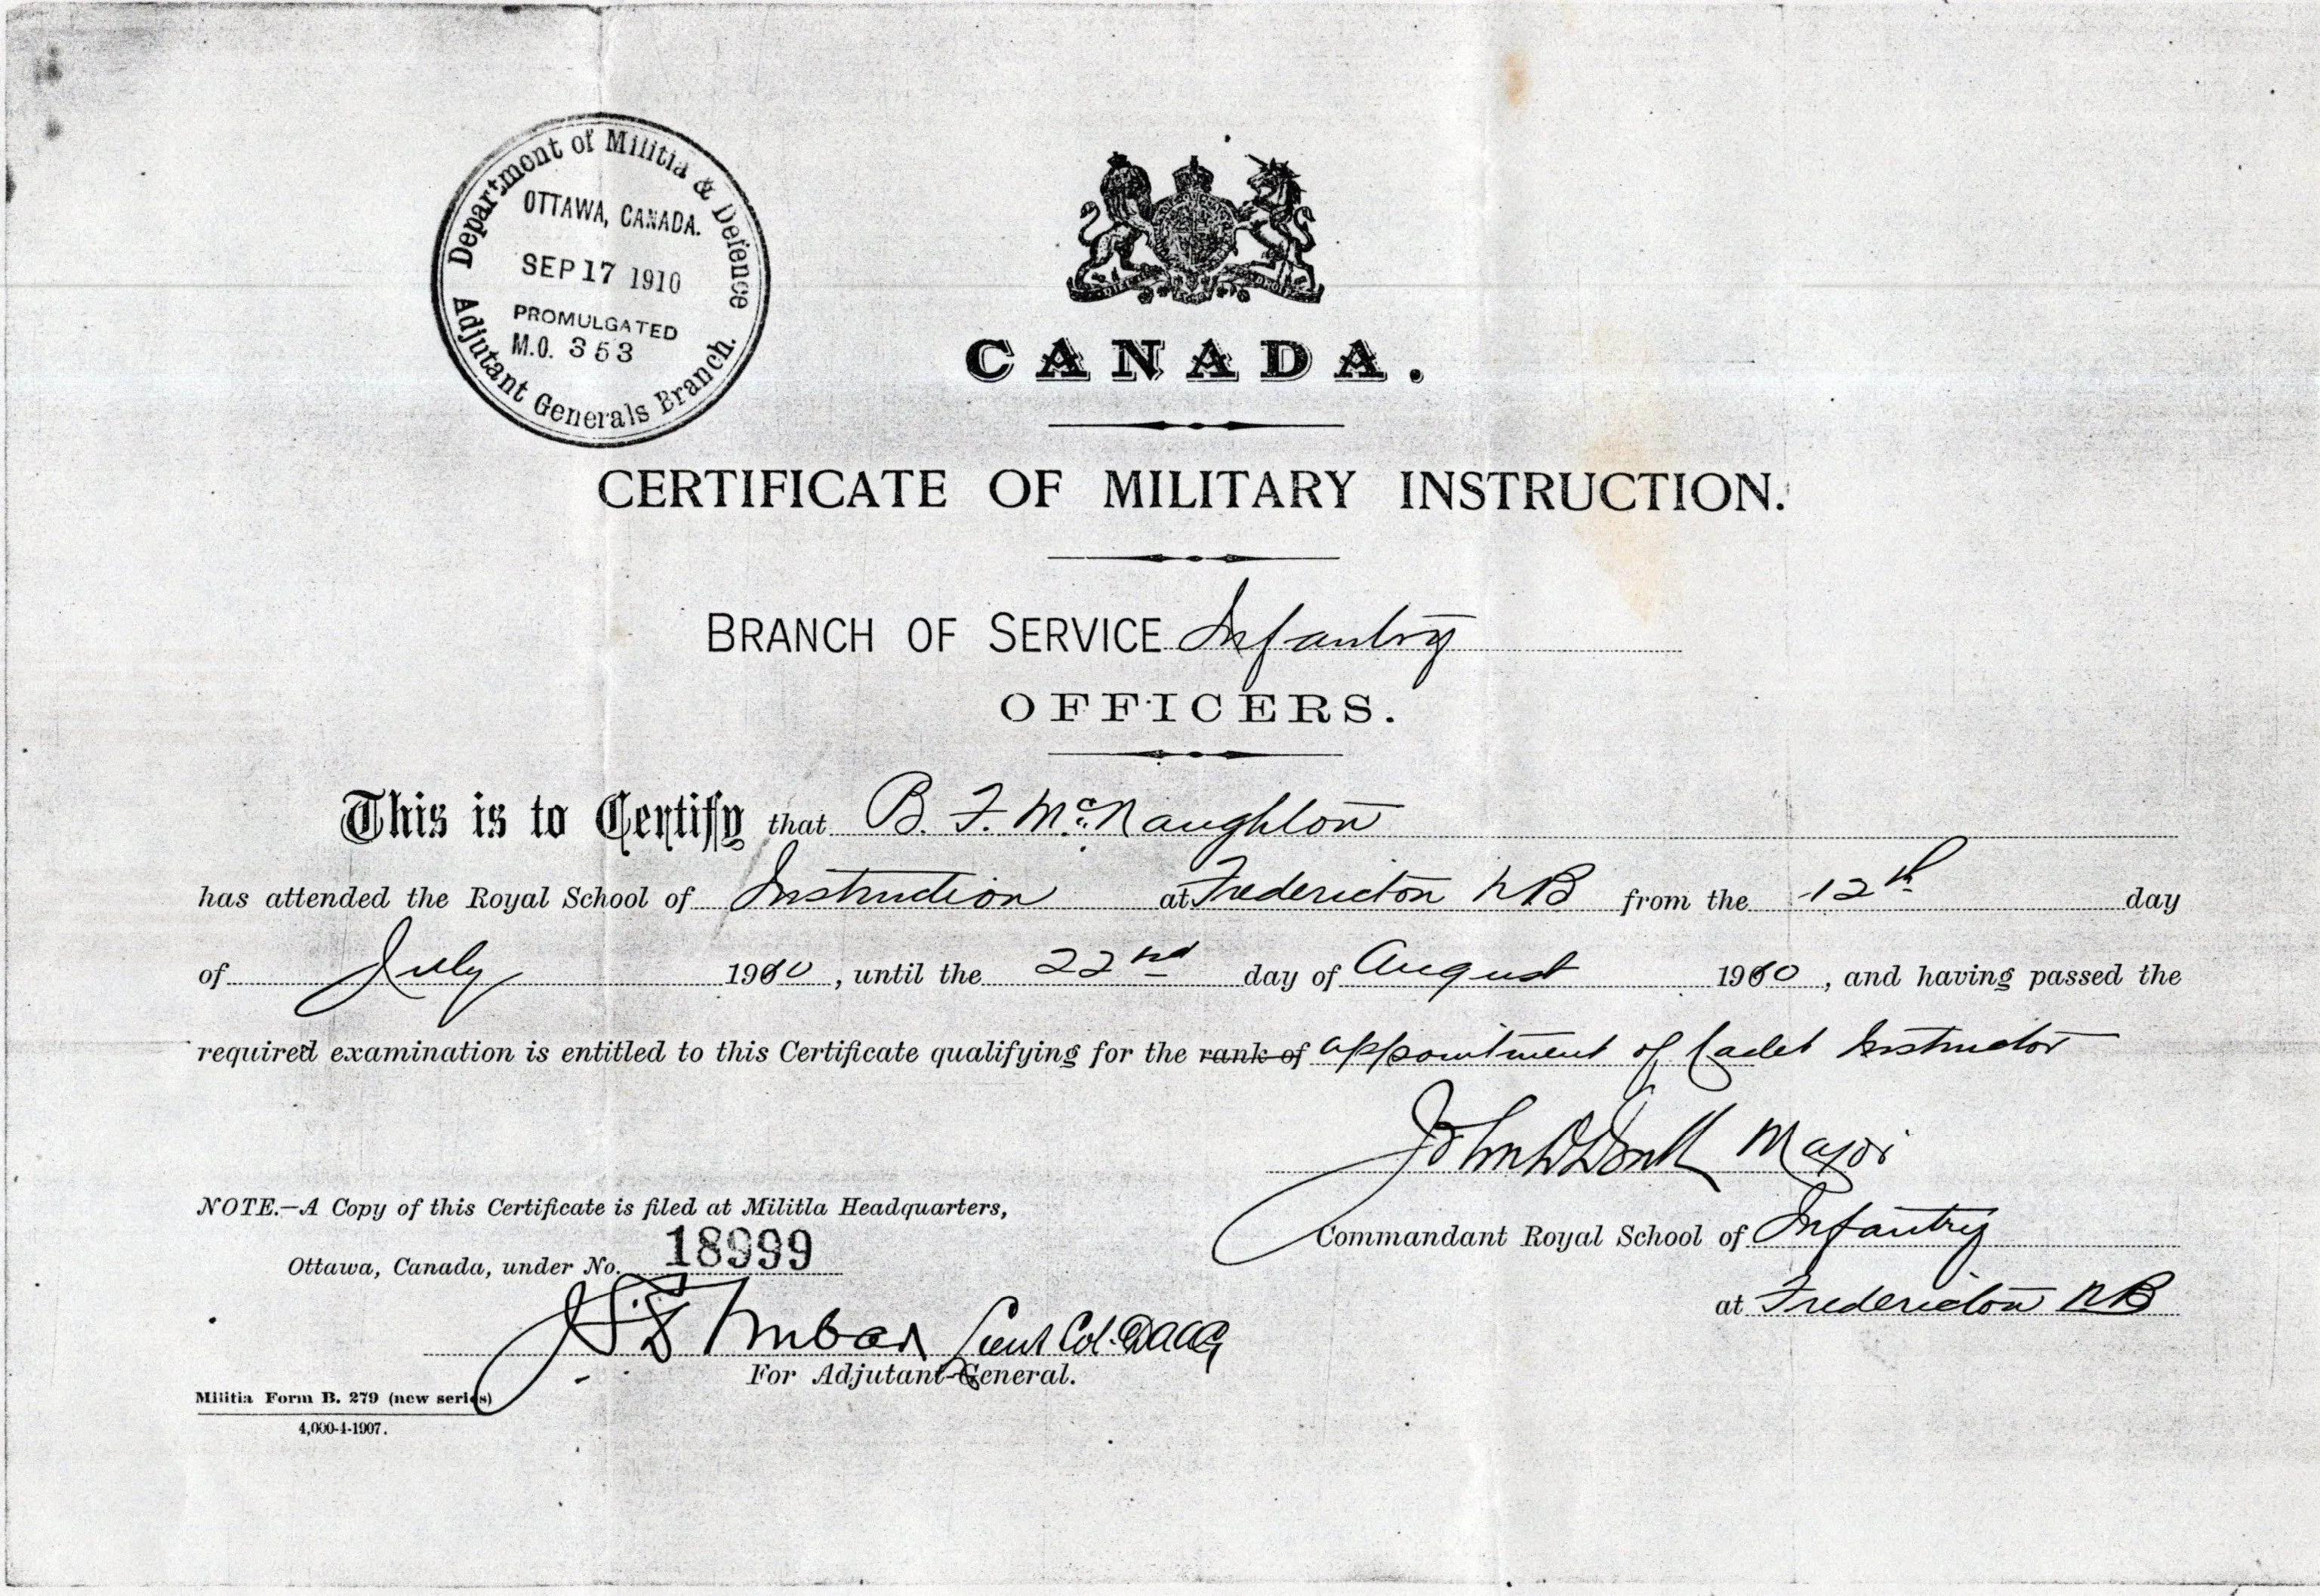 Department of Militia & Defence
OTTAWA, CANADA.
SEP 17 1910
PROMULGATED
M.O. 353
Adjutant Generals Branch.
CANADA.
CERTIFICATE OF MILITARY INSTRUCTION.
BRANCH OF SERVICE Infantry
OFFICERS.
This is to Certify that B. F. McNaughton
has attended the Royal School of Instruction at Fredericton NB from the 12th day
of July 1910, until the 22nd day of August 1910, and having passed the
required examination is entitled to this Certificate qualifying for the rank of appointment of Cadet Instructor
John Major
NOTE.—A Copy of this Certificate is filed at Militia Headquarters,
Commandant Royal School of Infantry
Ottawa, Canada, under No. 18999
at Fredericton NB
Lieut Col.
For Adjutant-General.
Militia Form B. 279 (new series)
4,000-4-1907.